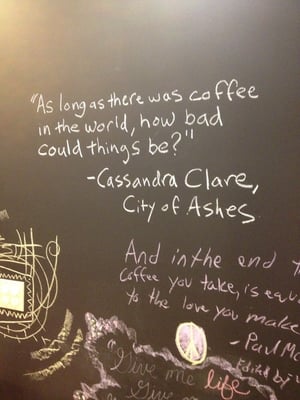 "As long as there was coffee
in the world, how bad
could things be?"
-Cassandra Clare,
City of Ashes
And in the end
Coffee you take, is
to the love you make
-Paul
Edited by
"Give me life
Give